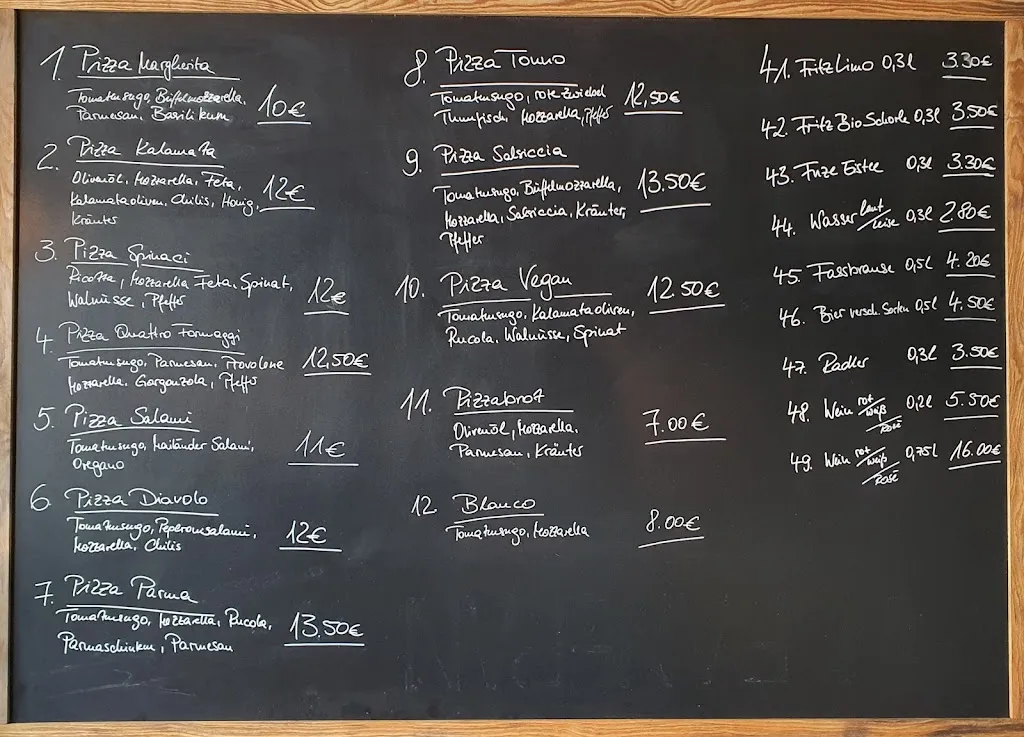 1. Pizza Margherita
Tomatensugo, Büffelmozzarella,
Parmesan, Basilikum 10€
2. Pizza Kalamata
Olivenöl, Mozzarella, Feta,
Kalamataoliven, Chilis, Honig, 12€
Kräuter
3. Pizza Spinaci
Ricotta, Mozzarella Feta, Spinat,
Walnüsse, Pfeffer 12€
4. Pizza Quattro Formaggi
Tomatensugo, Parmesan, Provolone 12,50€
Mozzarella, Gorgonzola, Pfeffer
5. Pizza Salami
Tomatensugo, Mailänder Salami, 11€
Oregano
6 Pizza Diavolo
Tomatensugo, Peperonisalami, 12€
Mozzarella, Chilis
7. Pizza Parma
Tomatensugo, Mozzarella, Rucola, 13.50€
Parmaschinken, Parmesan
8. Pizza Tonno
Tomatensugo, rote Zwiebel 12,50€
Thunfisch, Mozzarella, Pfeffer
9. Pizza Salsiccia
Tomatensugo, Büffelmozzarella, 13.50€
Mozzarella, Salsiccia, Kräuter,
Pfeffer
10. Pizza Vegan 12.50€
Tomatensugo, Kalamataoliven,
Rucola, Walnüsse, Spinat
11. Pizzabrot
Olivenöl, Mozzarella, 7.00€
Parmesan, Kräuter
12 Blanco
Tomatensugo, Mozzarella 8.00€
41. Fritz Limo 0,3l 3.30€
42. Fritz Bio Schorle 0,3l 3.50€
43. Fuze Eistee 0,3l 3.30€
44. Wasser laut/leise 0,3l 2.80€
45. Fassbrause 0,5l 4.20€
46. Bier versch. Sorten 0,5l 4.50€
47. Radler 0,3l 3.50€
48. Wein rot/weiß/Rosé 0,2l 5.50€
49. Wein rot/weiß/Rosé 0,75l 16.00€